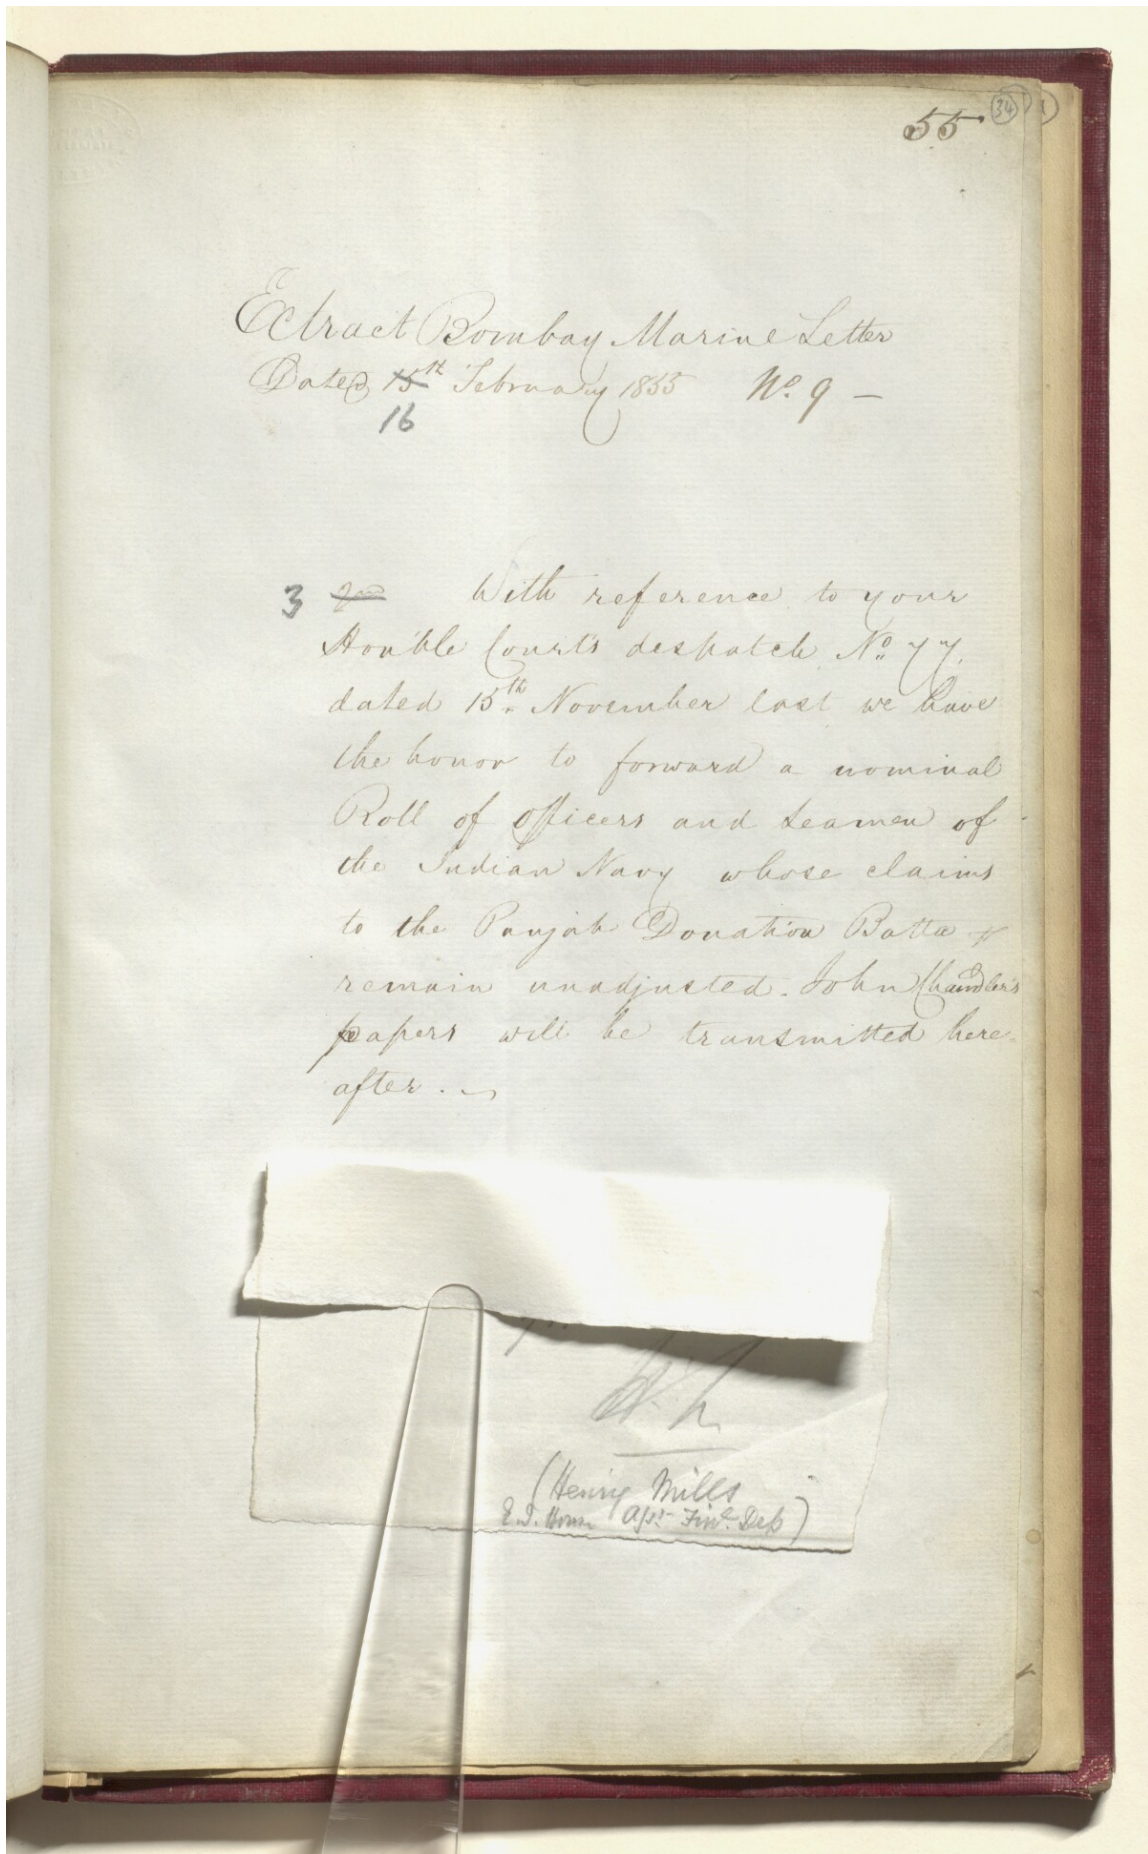 55 34
Extract Bombay Marine Letter
Dated 15th February 1855 No. 9 –
16
3 2nd With reference to your
Honble Court's despatch No. 77.
dated 15th November last we have
the honor to forward a nominal
Roll of Officers and Seamen of
the Indian Navy whose claims
to the Punjab Donation Batta
remain unadjusted. John Chandler's
papers will be transmitted here
after.
(Henry Mills
E.I. House Fin. Dep)